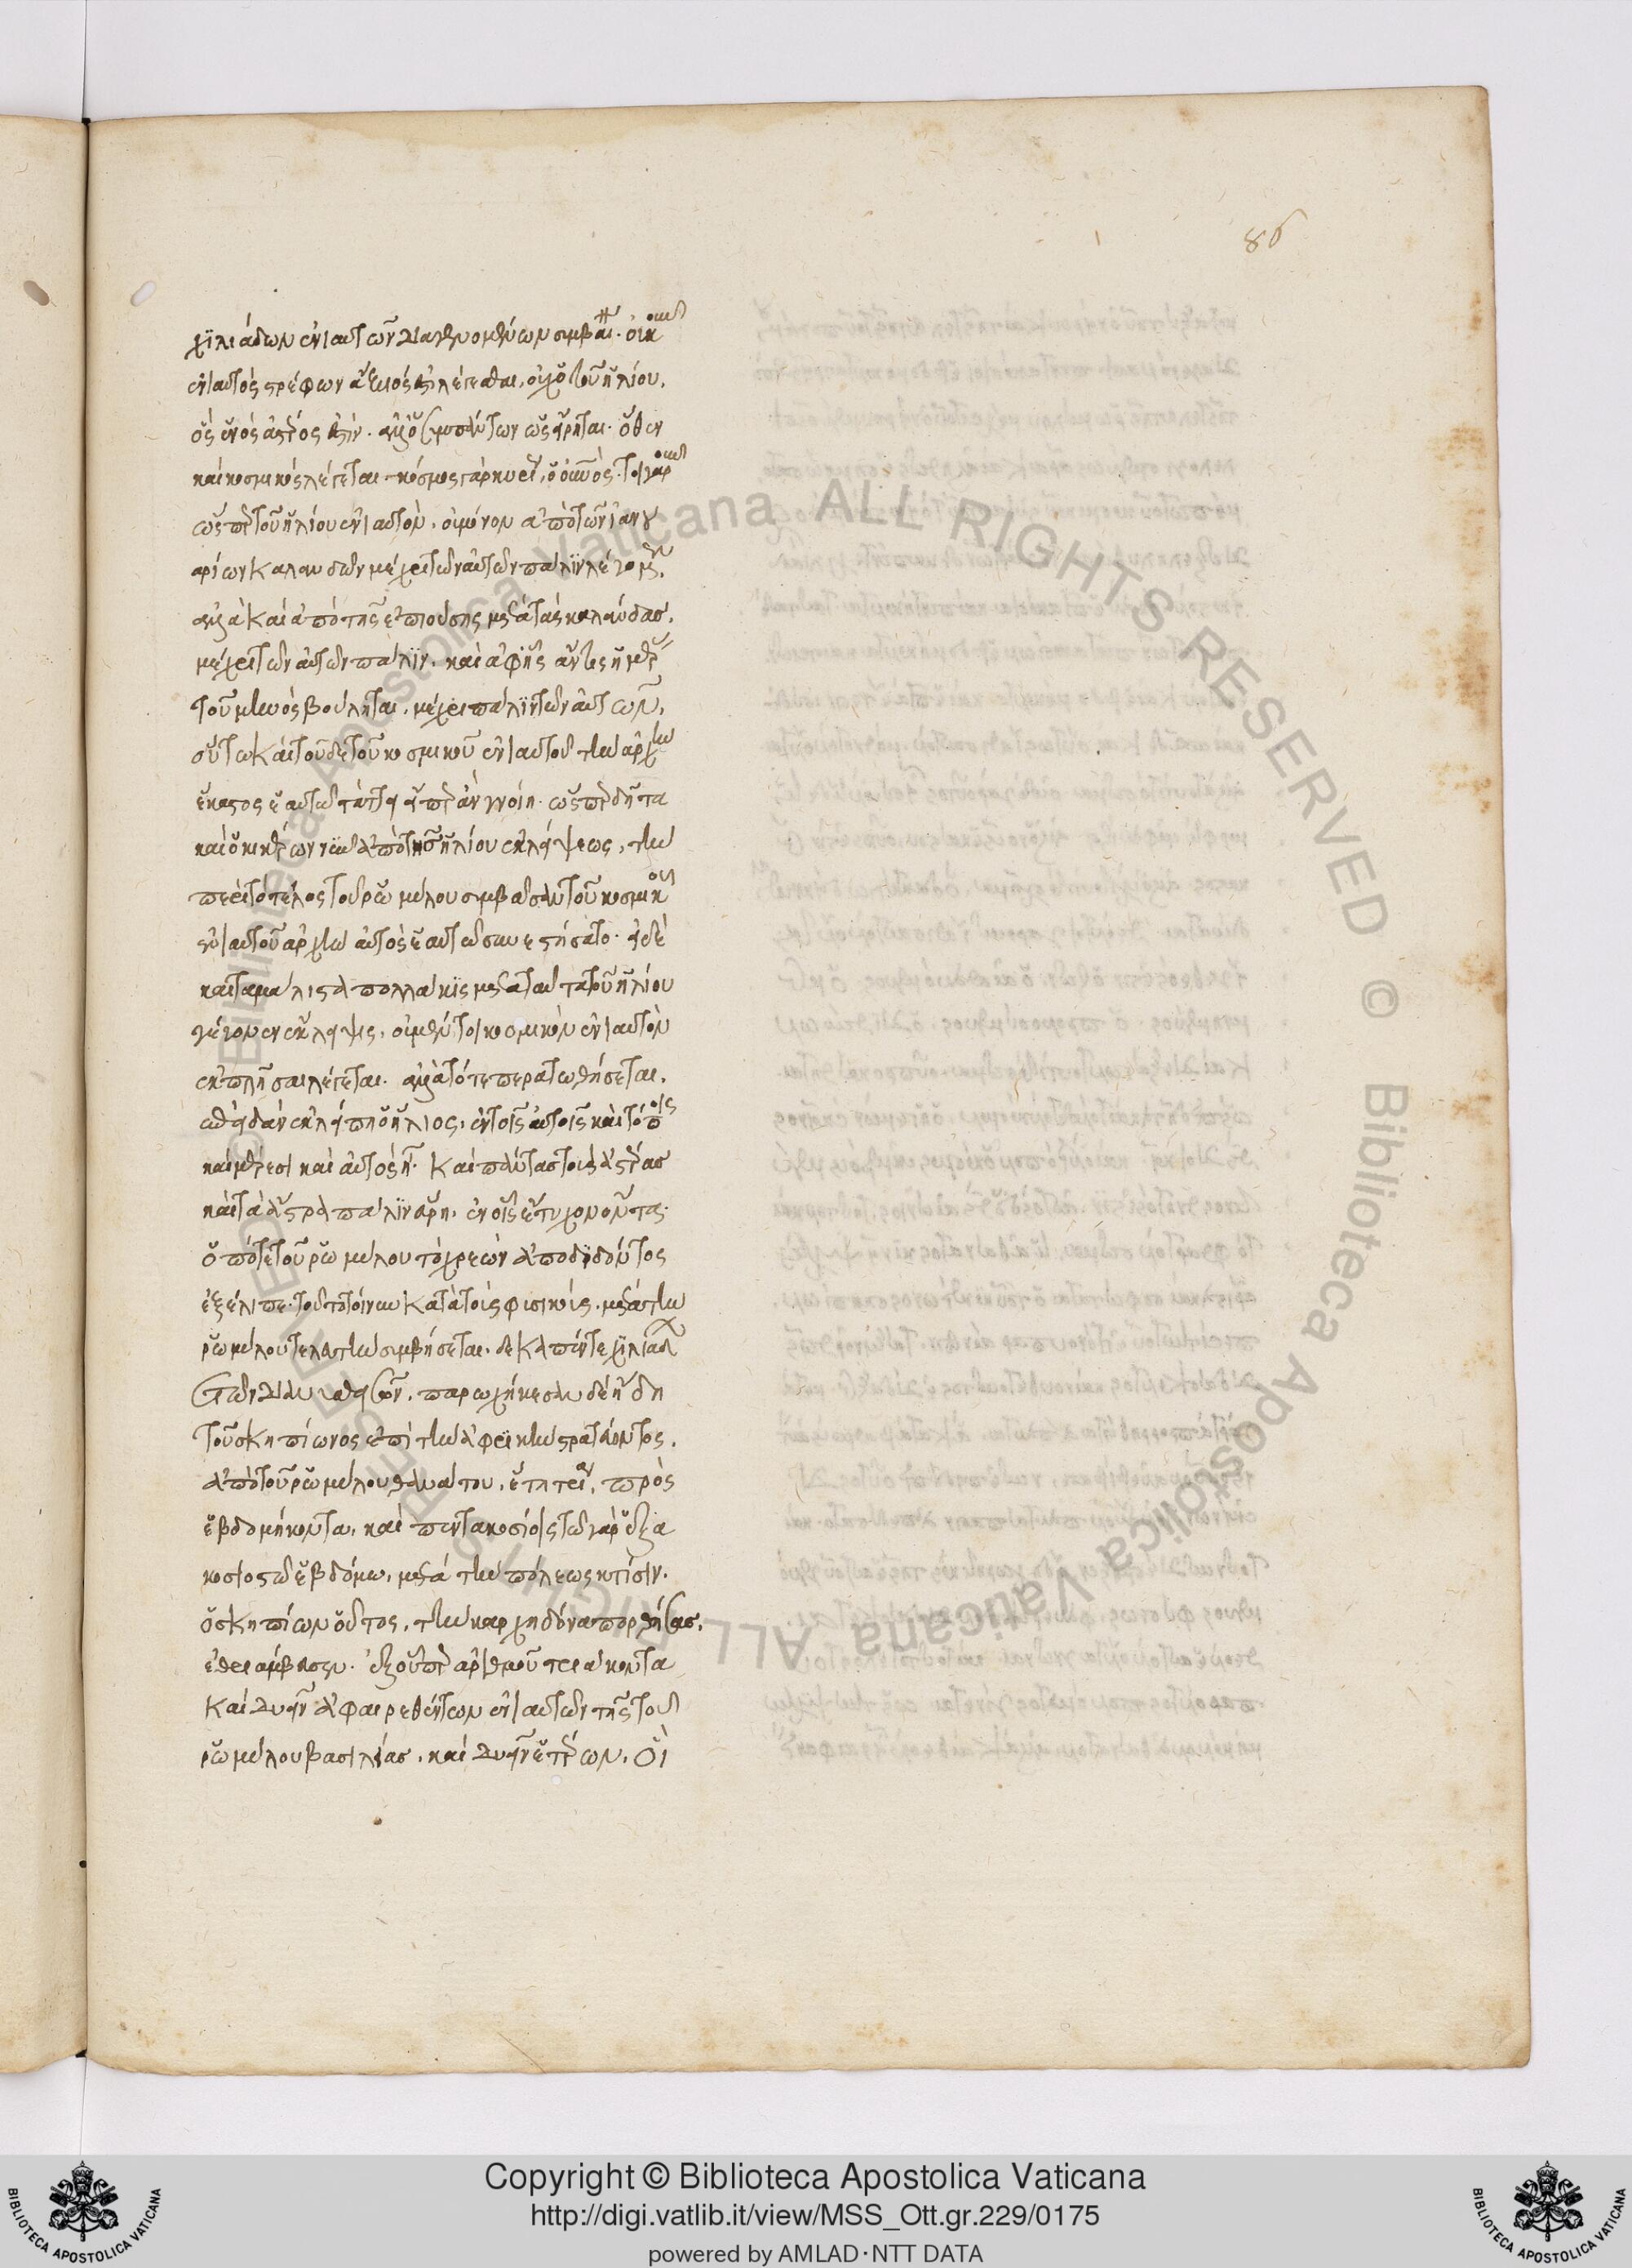 86
χιλιάδων ἐνιαυτῶν διαγενομένων συμβαί. οὐκ οῦν
ἐνιαυτὸς στρέφων ἄξιος ἐστὶ λέγεσθαι, οὐχ ὁ τοῦ ἡλίου,
ὃς ἑνὸς ἀστέρος ἐστίν. ἀλλ' ὁ συμπάντων ὡς εἴρηται. ὅθεν
καὶ κοσμικὸς λέγεται. κόσμος γὰρ κυρί, ὁ οὐνὸς. τοιγαροῦν
ὥσπερ τοῦ ἡλίου ἐνιαυτὸν, οὐ μόνον ἀπὸ τῶν ἰανου
αρίων καλανδῶν μέχρι τῶν αὐτῶν πάλιν λέγομεν.
ἀλλὰ καὶ ἀπὸ τῆς ἐπιούσης μετὰ τὰς καλάνδας,
μέχρι τῶν αὐτῶν πάλιν. καὶ ἀφ' ἧς ἄν τις ἡμέρας
τοῦ μηνὸς βούληται, μέχρι πάλιν τῶν αὐτῶν,
οὕτω καὶ τοῦδε τοῦ κοσμικοῦ ἐνιαυτοῦ τὴν ἀρχὴν
ἕκαστος ἑαυτῷ τάττει ᾗπερ ἂν γνοίη. ὥσπερ δῆτα
καὶ ὁ κικέρων νῦν ἀπὸ τῆς ἡλίου ἐκλείψεως, τὴν
περὶ τὸ τέλος τοῦ ῥωμύλου συμβᾶσαν τοῦ κοσμικοῦ
ἐνιαυτοῦ ἀρχὴν αὐτὸς ἑαυτῷ συνεστήσατο. εἰ δὲ
καὶ τὰ μάλιστα πολλάκις μετὰ ταῦτα τοῦ ἡλίου
γέγονεν ἔκλειψις, οὐ μέντοι κοσμικὸν ἐνιαυτὸν
ἐκπλῆσαι λέγεται. ἀλλὰ τότε περατωθήσεται,
ἐπειδὰν ἐκλείπῃ ὁ ἥλιος, ἐν τοῖς αὐτοῖς καὶ τόποις
καὶ μέρεσι καὶ αὐτὸς ᾖ. καὶ πάντας τοὺς ἀστέρας
καὶ τὰ ἄστρα πάλιν εὕρῃ, ἐν οἷς ἐτύγχανον ὄντας
ὁπότε τοῦ ῥωμύλου τὸ χρεὼν ἀποδιδόντος
ἐξέλιπε. τοῦτο τοίνυν κατὰ τοὺς φυσικοὺς, μετὰ τὴν
ῥωμύλου τελευτὴν συμβήσεται, δεκαπέντε χιλιάδων
ἐτῶν διανυθεισῶν. παρῳχήκεσαν δὲ ἤδη
τοῦ σκηπίωνος ἐπὶ τὴν ἀφρικὴν στρατεύοντος,
ἀπὸ τοῦ ῥωμύλου θανάτου, ἔτη τρία, πρὸς
ἑβδομήκοντα, καὶ πεντακοσίοις τῷ γὰρ ἑξα
κοσιοστῷ ἑβδόμῳ, μετὰ τὴν πόλεως κτίσιν.
ὁ σκηπίων οὗτος, τὴν καρχηδόνα πορθήσας,
ἐθριάμβευσεν. ἐξ οὗπερ ἀριθμοῦ τριάκοντα
καὶ δυεῖν ἀφαιρεθέντων ἐνιαυτῶν τῆς τοῦ
ῥωμύλου βασιλείας, καὶ δυεῖν ἑτέρων, οἳ
Copyright © Biblioteca Apostolica Vaticana
http://digi.vatlib.it/view/MSS_Ott.gr.229/0175
powered by AMLAD·NTT DATA
BIBLIOTECA APOSTOLICA VATICANA
BIBLIOTECA APOSTOLICA VATICANA
© Biblioteca Apostolica Vaticana ALL RIGHTS RESERVED
© Biblioteca Apostolica Vaticana ALL RIGHTS RESERVED